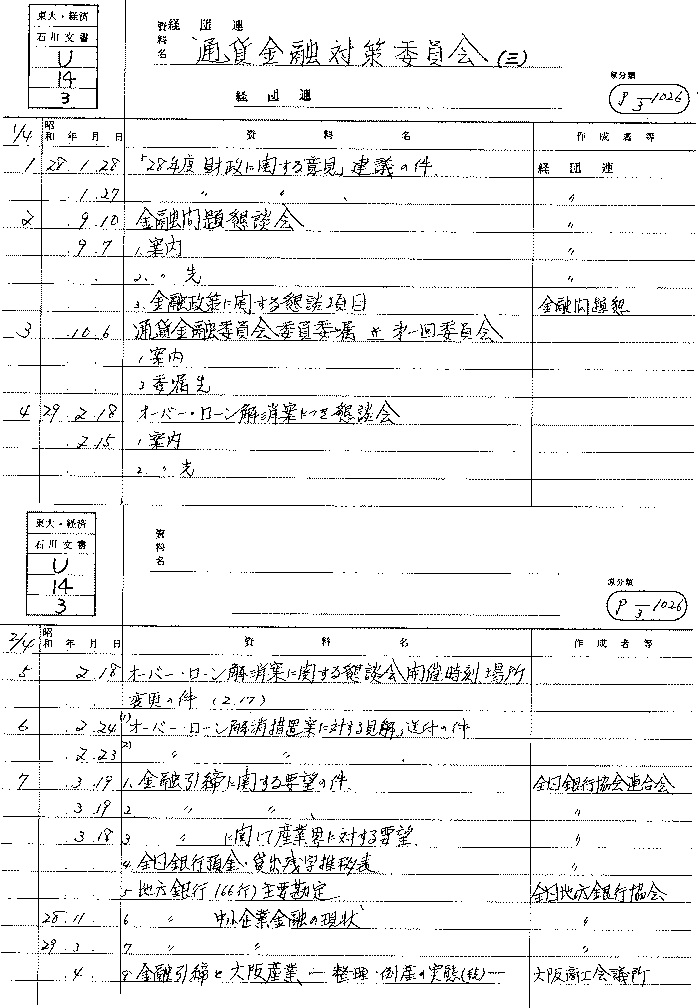 東大・経済
石川文書
U
14
3
資料名 経団連
通貨金融対策委員会 (三)
経団連
原分類
P 3-1026
1/4 昭和 年 月 日 資料名 作成者等
1 28.1.28 「28年度財政に関する意見」建議の件 経団連
1.27 〃 〃 〃
2 .9.10 金融問題懇談会 〃
.9.7 1.案内 〃
2.〃先 〃
3.金融政策に関する懇談項目 金融問題懇
3 .10.6 通貨金融委員会委員委嘱 並 第一回委員会
1案内
2委嘱先
4 29.2.18 オーバー・ローン解消案につき懇談会
.2.15 1案内
2.〃先
東大・経済
石川文書
U
14
3
資料名
原分類
P 3-1026
2/4 昭和 年 月 日 資料名 作成者等
5 2.18 オーバー・ローン解消案に関する懇談会開催時刻場所
変更の件 (2.17)
6 .2.24 (1)「オーバー・ローン解消措置案に対する見解」送付の件
.2.23 (2) 〃 〃
7 3.19 1.金融引締に関する要望の件 全国銀行協会連合会
3.19 2 〃 〃 〃
3.18 3 〃 に関して産業界に対する要望 〃
4.全国銀行預金・貸出残字推移表 〃
5.地方銀行(66行)主要勘定 全国地方銀行協会
28.11. 6 〃 中小企業金融の現状 〃
29.3. 7 〃 〃 〃
.4. 8 金融引締と大阪産業、―整理・倒産の実態(続)― 大阪商工会議所